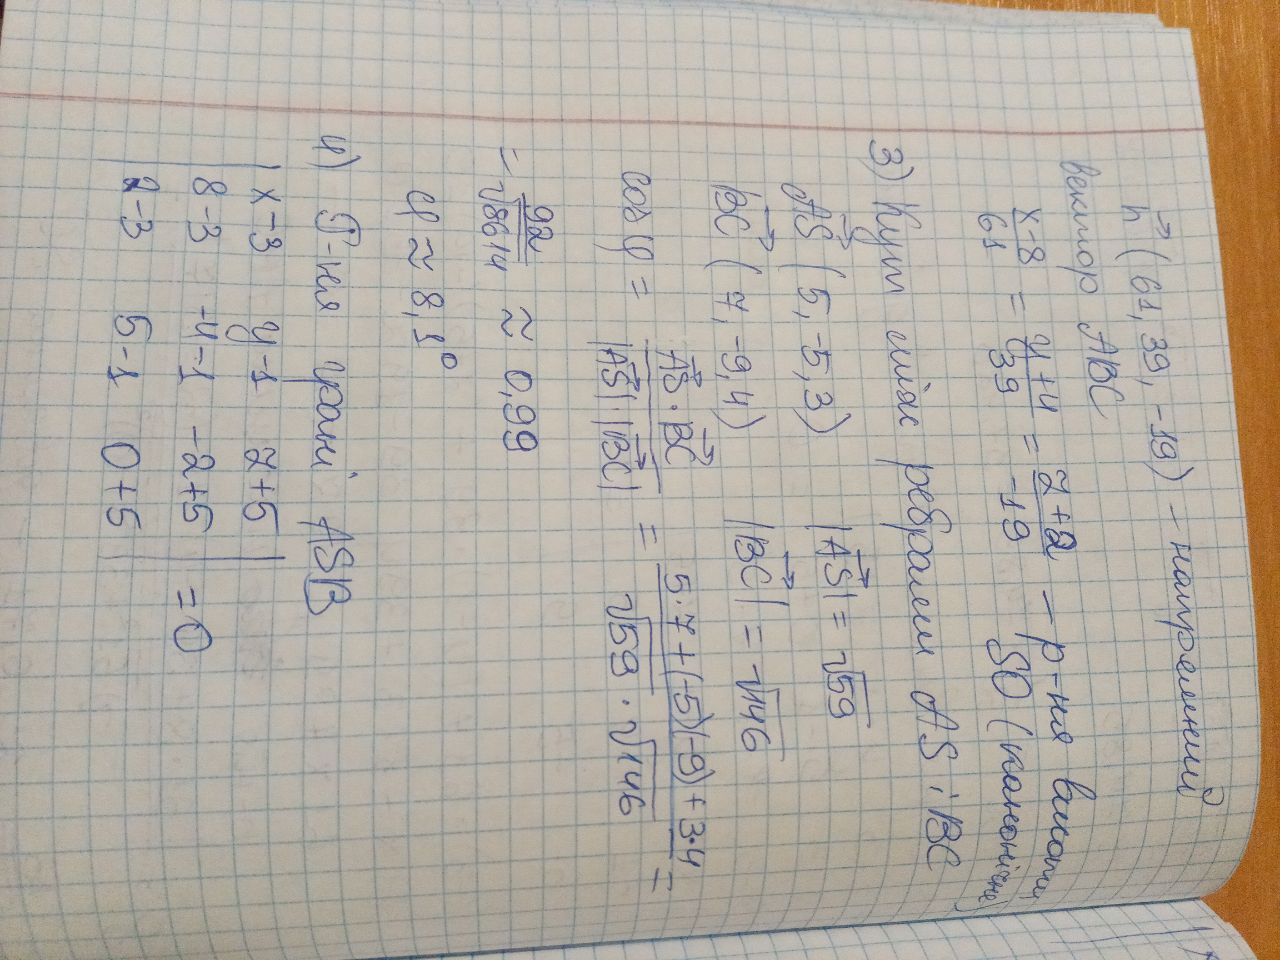 n⃗ (61, 39, -19) - напрямний
вектор ABC
(x-8)/61 = (y+4)/39 = (z+2)/-19 — р-ня висоти
SO (канонічне)
3) Кут між ребрами AS і BC
AS⃗ (5, -5, 3) |AS⃗| = √59
|BC⃗ (7, -9, 4) |BC⃗| = √146
cos φ = (AS⃗ · BC⃗)/(|AS⃗| · |BC⃗|) = (5·7+(-5)(-9)+3·4)/(√59 · √146) =
= 92/√8614 ≈ 0,99
φ ≈ 8,1°
4) Р-ня грані ASB
| x-3 y-1 z+5 |
| 8-3 -4-1 -2+5 | = 0
| 2-3 5-1 0+5 |